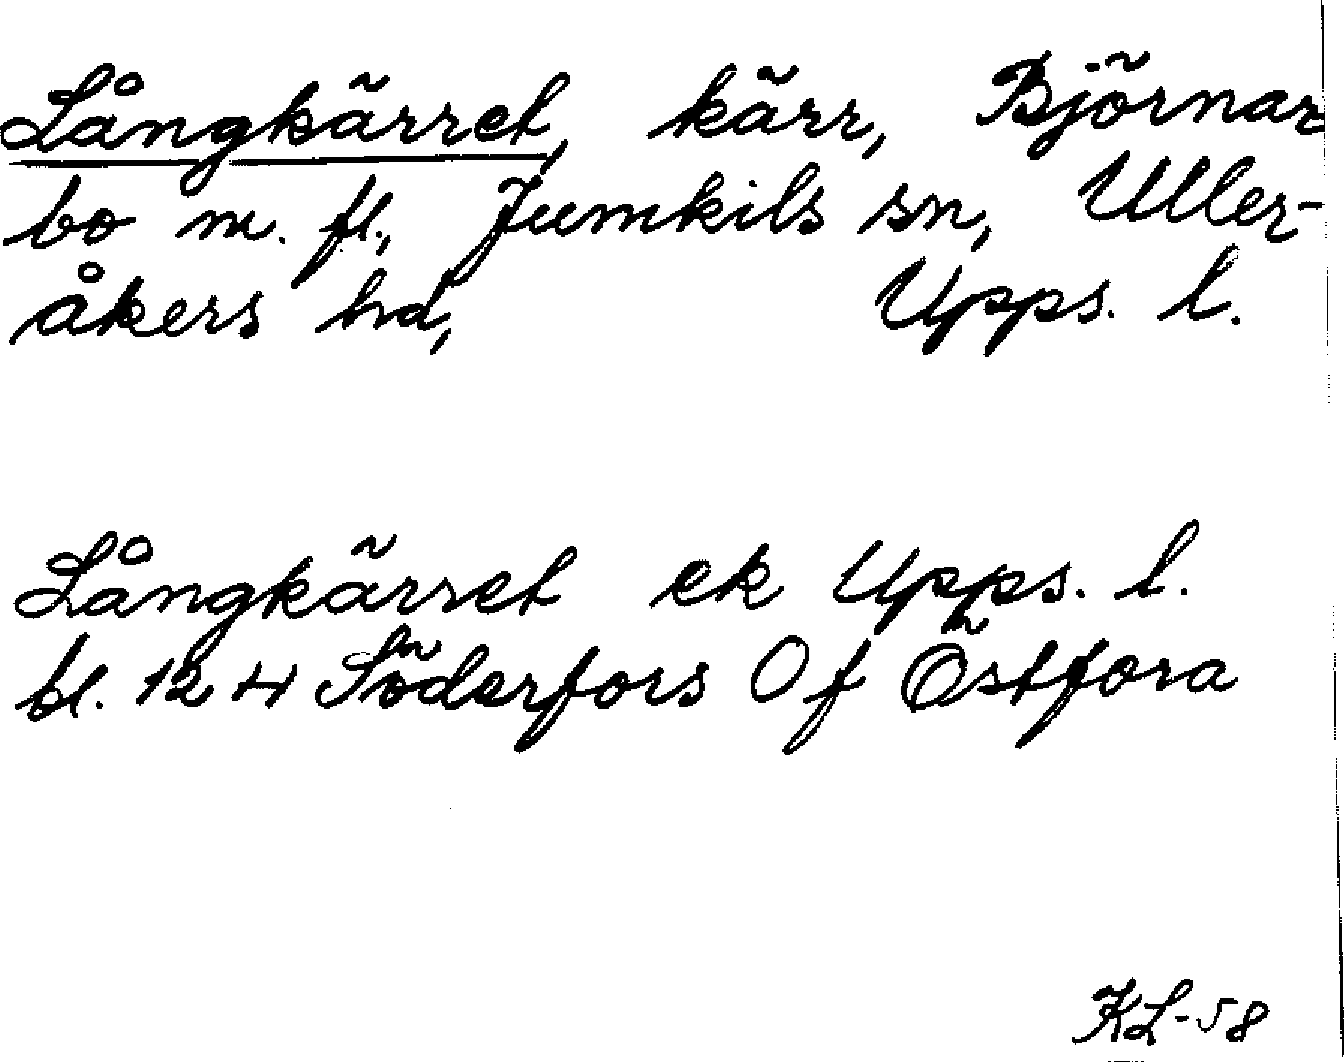 Långkärret, kärr, Björnar
bo m. fl., Jumkils sn, Uller-
åkers hd, Upps. l.
Långkärret ek Upps. l.
bl. 12 H Söderfors Of Östfora
KL-58